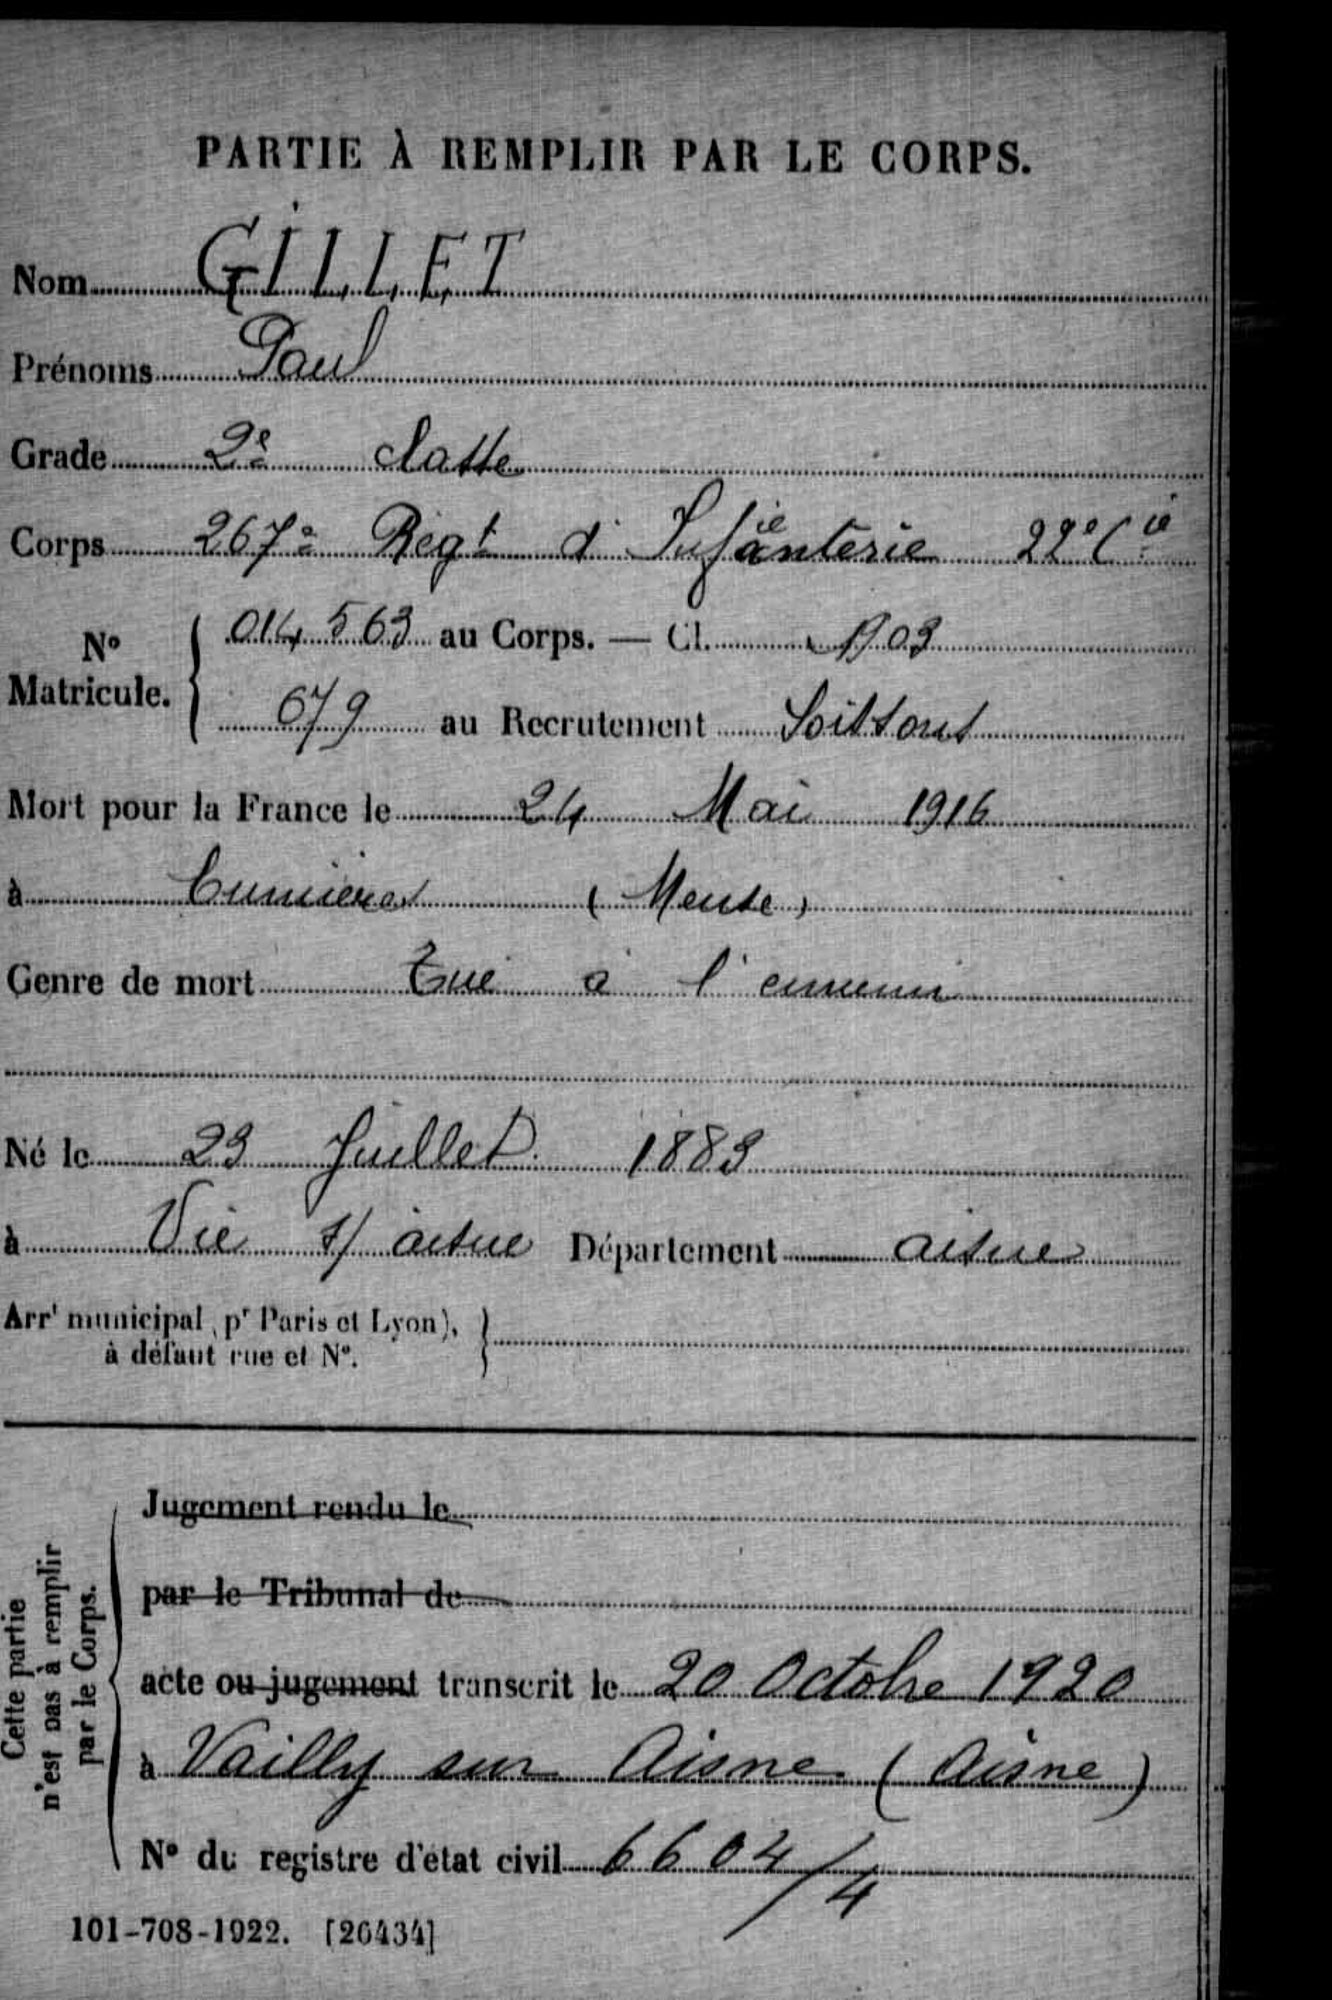 PARTIE À REMPLIR PAR LE CORPS.
Nom GILLET
Prénoms Paul
Grade 2e classe
Corps 267e Régt d'Infanterie 22e Cie
No Matricule. 014563 au Corps. — Cl. 1903
679 au Recrutement Soissons
Mort pour la France le 24 Mai 1916
à Cumières (Meuse)
Genre de mort Tué à l'ennemi
Né le 23 Juillet 1883
à Vic s/ aisne Département aisne
Arrt municipal (pr Paris et Lyon), à défaut rue et No.
Jugement rendu le
par le Tribunal de
acte ou jugement transcrit le 20 Octobre 1920
à Vailly sur Aisne (Aisne)
No du registre d'état civil 6604/4
Cette partie n'est pas à remplir par le Corps.
101-708-1922. [26434]